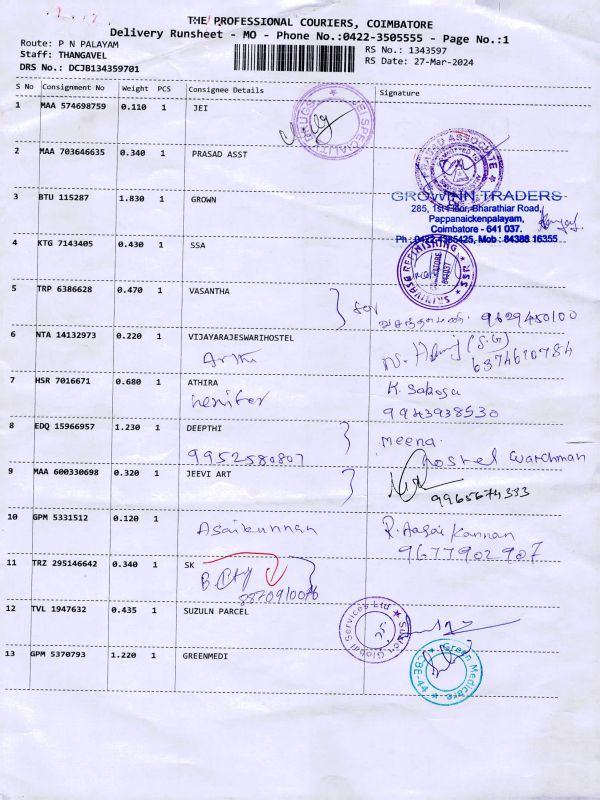 THE PROFESSIONAL COURIERS, COIMBATORE
Delivery Runsheet - MO - Phone No.:0422-3505555 - Page No.:1
Route: P N PALAYAM
Staff: THANGAVEL
DRS No.: DCJB134359701
RS No.: 1343597
RS Date: 27-Mar-2024
S No Consignment No Weight PCS Consignee Details Signature
1 MAA 574698759 0.110 1 JEI
2 MAA 703646635 0.340 1 PRASAD ASST
PRASAD ASSOCIATE
3 BTU 115287 1.830 1 GROWN
GROWINN TRADERS
285, 1st Floor, Bharathiar Road,
Pappanaickenpalayam,
Coimbatore - 641 037.
Ph : 0422-4385425, Mob : 84388 16355
4 KTG 7143405 0.430 1 SSA
SRINIVASA REFINISHING
5 TRP 6386628 0.470 1 VASANTHA
9629450100
6 NTA 14132973 0.220 1 VIJAYARAJESWARIHOSTEL
(S.G)
6374610784
7 HSR 7016671 0.680 1 ATHIRA
9943938530
8 EDQ 15966957 1.230 1 DEEPTHI
meena
9952580807
hostel warchman
9 MAA 600330698 0.320 1 JEEVI ART
9965674333
10 GPM 5331512 0.120 1
Asaikunnan
R. Aasai Kannan
9677902907
11 TRZ 295146642 0.340 1 SK
8870910076
12 TVL 1947632 0.435 1 SUZULN PARCEL
Suzlon Global Services Ltd
13 GPM 5370793 1.220 1 GREENMEDI
Green Medicare
CBE-44